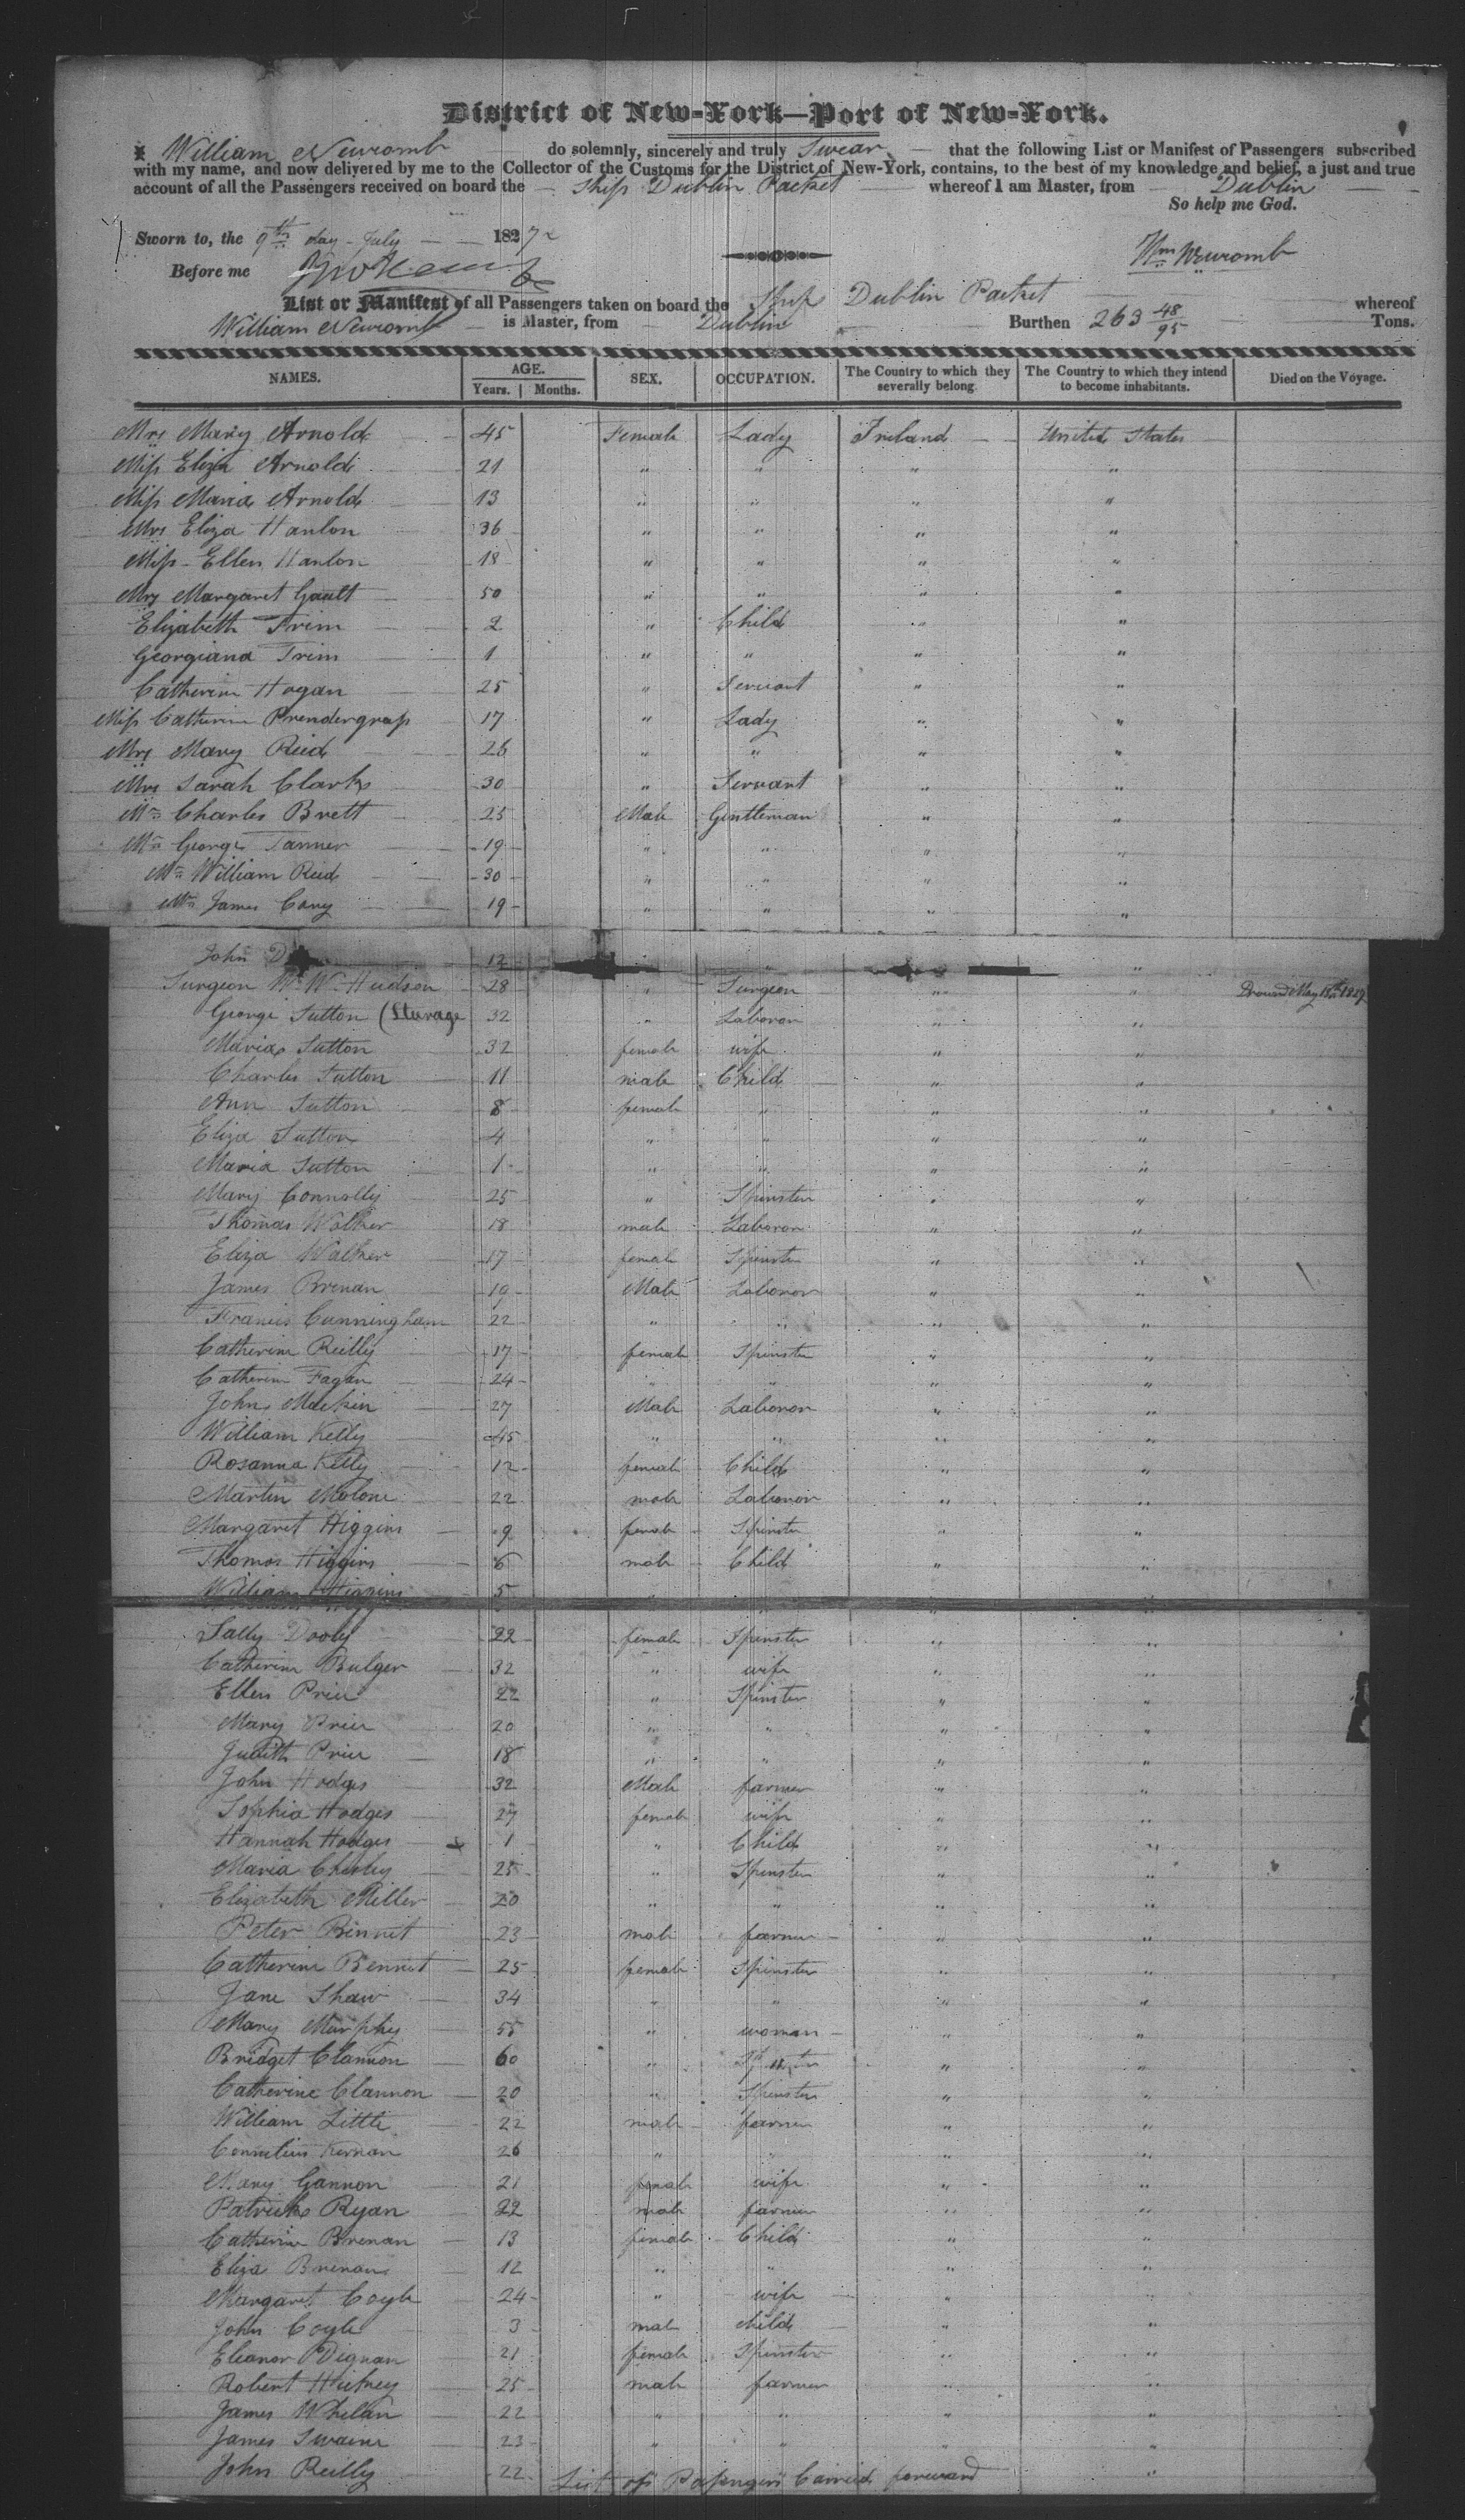 District of New-York—Port of New-York.
I William Newcomb do solemnly, sincerely and truly Swear that the following List or Manifest of Passengers subscribed
with my name, and now delivered by me to the Collector of the Customs for the District of New-York, contains, to the best of my knowledge and belief, a just and true
account of all the Passengers received on board the Ship Dublin Packet whereof I am Master, from Dublin
So help me God.
Sworn to, the 9th day July 1827
Wm Newcomb
Before me
List or Manifest of all Passengers taken on board the Ship Dublin Packet whereof
William Newcomb is Master, from Dublin Burthen 263 48/95 Tons.
NAMES. AGE. Years. Months. SEX. OCCUPATION. The Country to which they severally belong. The Country to which they intend to become inhabitants. Died on the Voyage.
Mrs Mary Arnold 45 Female Lady Ireland United States
Miss Eliza Arnold 21 " " " "
Miss Maria Arnold 13 " " " "
Mrs Eliza Hanlon 36 " " " "
Miss Ellen Hanlon 18 " " " "
Mrs Margaret Gault 50 " " " "
Elizabeth Trim 2 " Child " "
Georgiana Trim 1 " " " "
Catherine Hogan 25 " Servant " "
Miss Catherine Prendergrass 17 " Lady " "
Mrs Mary Reid 26 " " " "
Mrs Sarah Clarke 30 " Servant " "
Mr Charles Brett 25 Male Gentleman " "
Mr George Tanner 19 " " " "
Mr William Reid 30 " " " "
Mr James Cary 19 " " " "
John 12 " " "
Surgeon Wm W. Hudson 28 " Surgeon " " Drownd May 1827
George Sutton (Sturage 32 " Laboror " "
Maria Sutton 32 female wife " "
Charles Sutton 11 male Child " "
Ann Sutton 8 female " " "
Eliza Sutton 4 " " " "
Maria Sutton 1 " " " "
Mary Connolly 25 " Spinster " "
Thomas Walker 18 male Laboror " "
Eliza Walker 17 female Spinster " "
James Brenan 19 Male Laboror " "
Francis Cunningham 22 " " " "
Catherine Reilly 17 female Spinster " "
Catherine Fagan 24 " " " "
John Mackin 27 Male Laboror " "
William Kelly 45 " " " "
Rosanna Kelly 12 female Child " "
Martin Malone 22 male Laboror " "
Margaret Higgins 9 female Spinster " "
Thomas Higgins 6 male Child " "
William Higgins 5 " " " "
Sally Dooly 22 female Spinster " "
Catherine Bulger 32 " wife " "
Ellen Price 22 " Spinster " "
Mary Price 20 " " " "
Judith Price 18 " " " "
John Hodges 32 Male farmer " "
Sophia Hodges 27 female wife " "
Hannah Hodges 1 " Child " "
Maria Chesley 25 " Spinster " "
Elizabeth Miller 20 " " " "
Peter Binnet 23 male farmer " "
Catherine Bennet 25 female Spinster " "
Jane Shaw 34 " " " "
Mary Murphy 55 " woman " "
Bridget Clannon 60 " " "
Catherine Clannon 20 " Spinster " "
William Little 22 male farmer " "
Cornelius Kernan 26 " " " "
Mary Gannon 21 female wife " "
Patrick Ryan 22 male farmer " "
Catherine Brenan 13 female Child " "
Eliza Brenan 12 " " " "
Margaret Coyle 24 " wife " "
John Coyle 3 male child " "
Eleanor Dignan 21 female Spinster " "
Robert Hickey 25 male farmer " "
James Whelan 22 " " " "
James Swaine 23 " " " "
John Reilly 22 List of Passengers Carried forward "